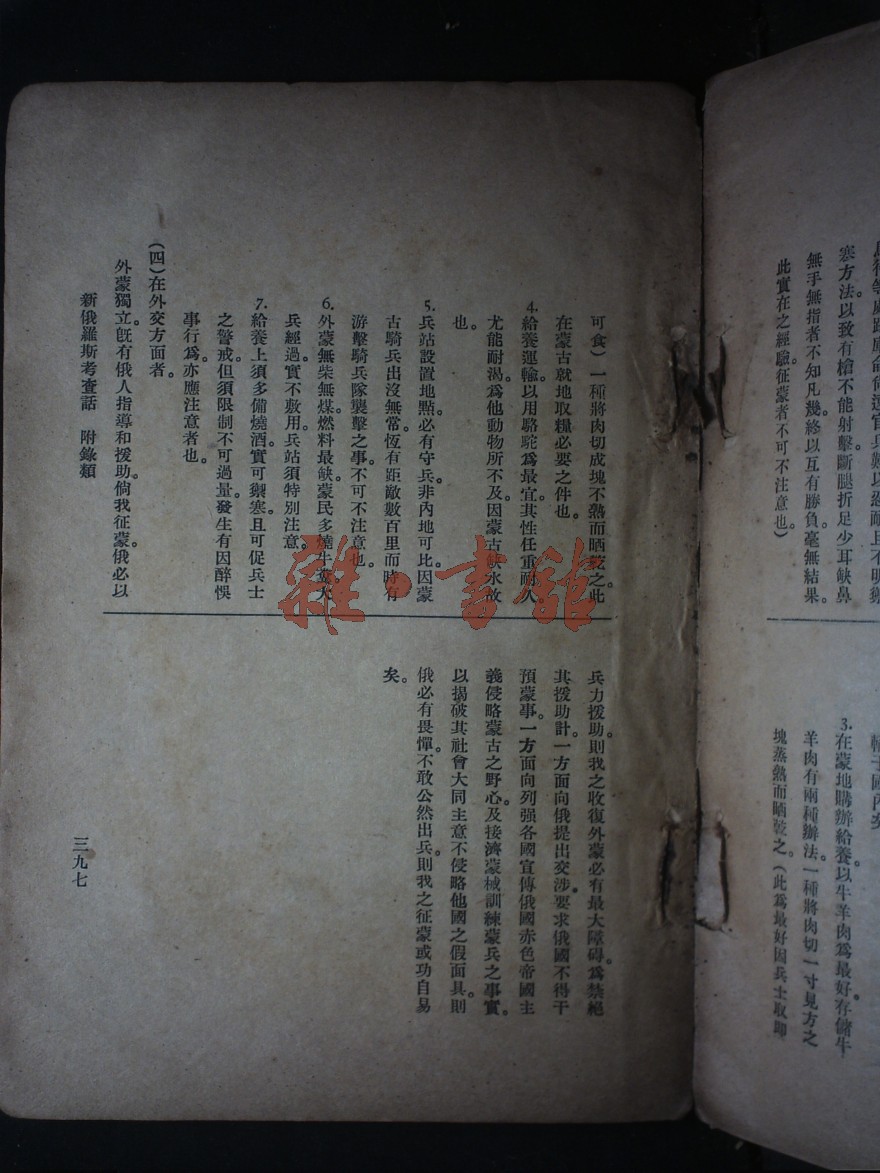 塞方法以致有槍不能射擊斷腿折足少耳缺鼻
無手無指者不知凡幾終以互有勝負。毫無結果。
此實在之經驗征蒙者不可不注意也。)
3. 在蒙地購辦給養。以牛羊肉爲最好。存儲牛
羊肉有兩種辦法。一種將肉切一寸見方之
塊蒸熟而晒乾之。(此爲最好因兵士取卽
可食)一種將肉切成塊不熟而晒乾之。此
在蒙古就地取糧必要之件也。
4. 給養運輸。以用駱駝爲最宜。其性任重耐久
尤能耐渴。爲他動物所不及。因蒙古缺水故
也。
5. 兵站設置地點。必有守兵。非內地可比。因蒙
古騎兵出沒無常。恆有距敵數百里而時有
游擊騎兵隊襲擊之事。不可不注意也。
6. 外蒙無柴無煤。燃料最缺。蒙民多燒牛糞大
兵經過。實不敷用。兵站須特別注意。
7. 給養上須多備燒酒。實可禦寒。且可促兵士
之警戒。但須限制不可過量。發生有因醉悞
事行爲。亦應注意者也。
(四)在外交方面者。
外蒙獨立。旣有俄人指導和援助。倘我征蒙。俄必以
兵力援助。則我之收復外蒙必有最大障碍。爲禁絕
其援助計。一方面向俄提出交涉。要求俄國不得干
預蒙事。一方面向列强各國宣傳俄國赤色帝國主
義侵略蒙古之野心。及接濟蒙械訓練蒙兵之事實。
以揭破其社會大同主意不侵略他國之假面具。則
俄必有畏憚。不敢公然出兵。則我之征蒙或功自易
矣。
新俄羅斯考查話 附錄類
三九七
雜·書館